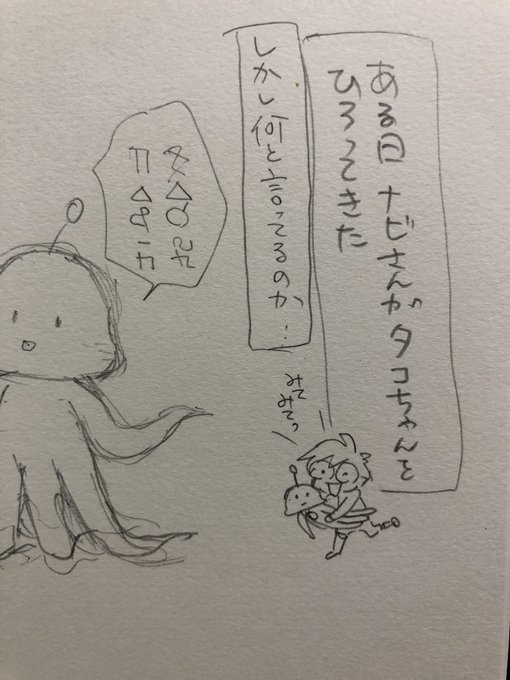 ある日 ナビさんがタコちゃんを
ひろってきた
しかし何と言ってるのか…
みて
みてっ